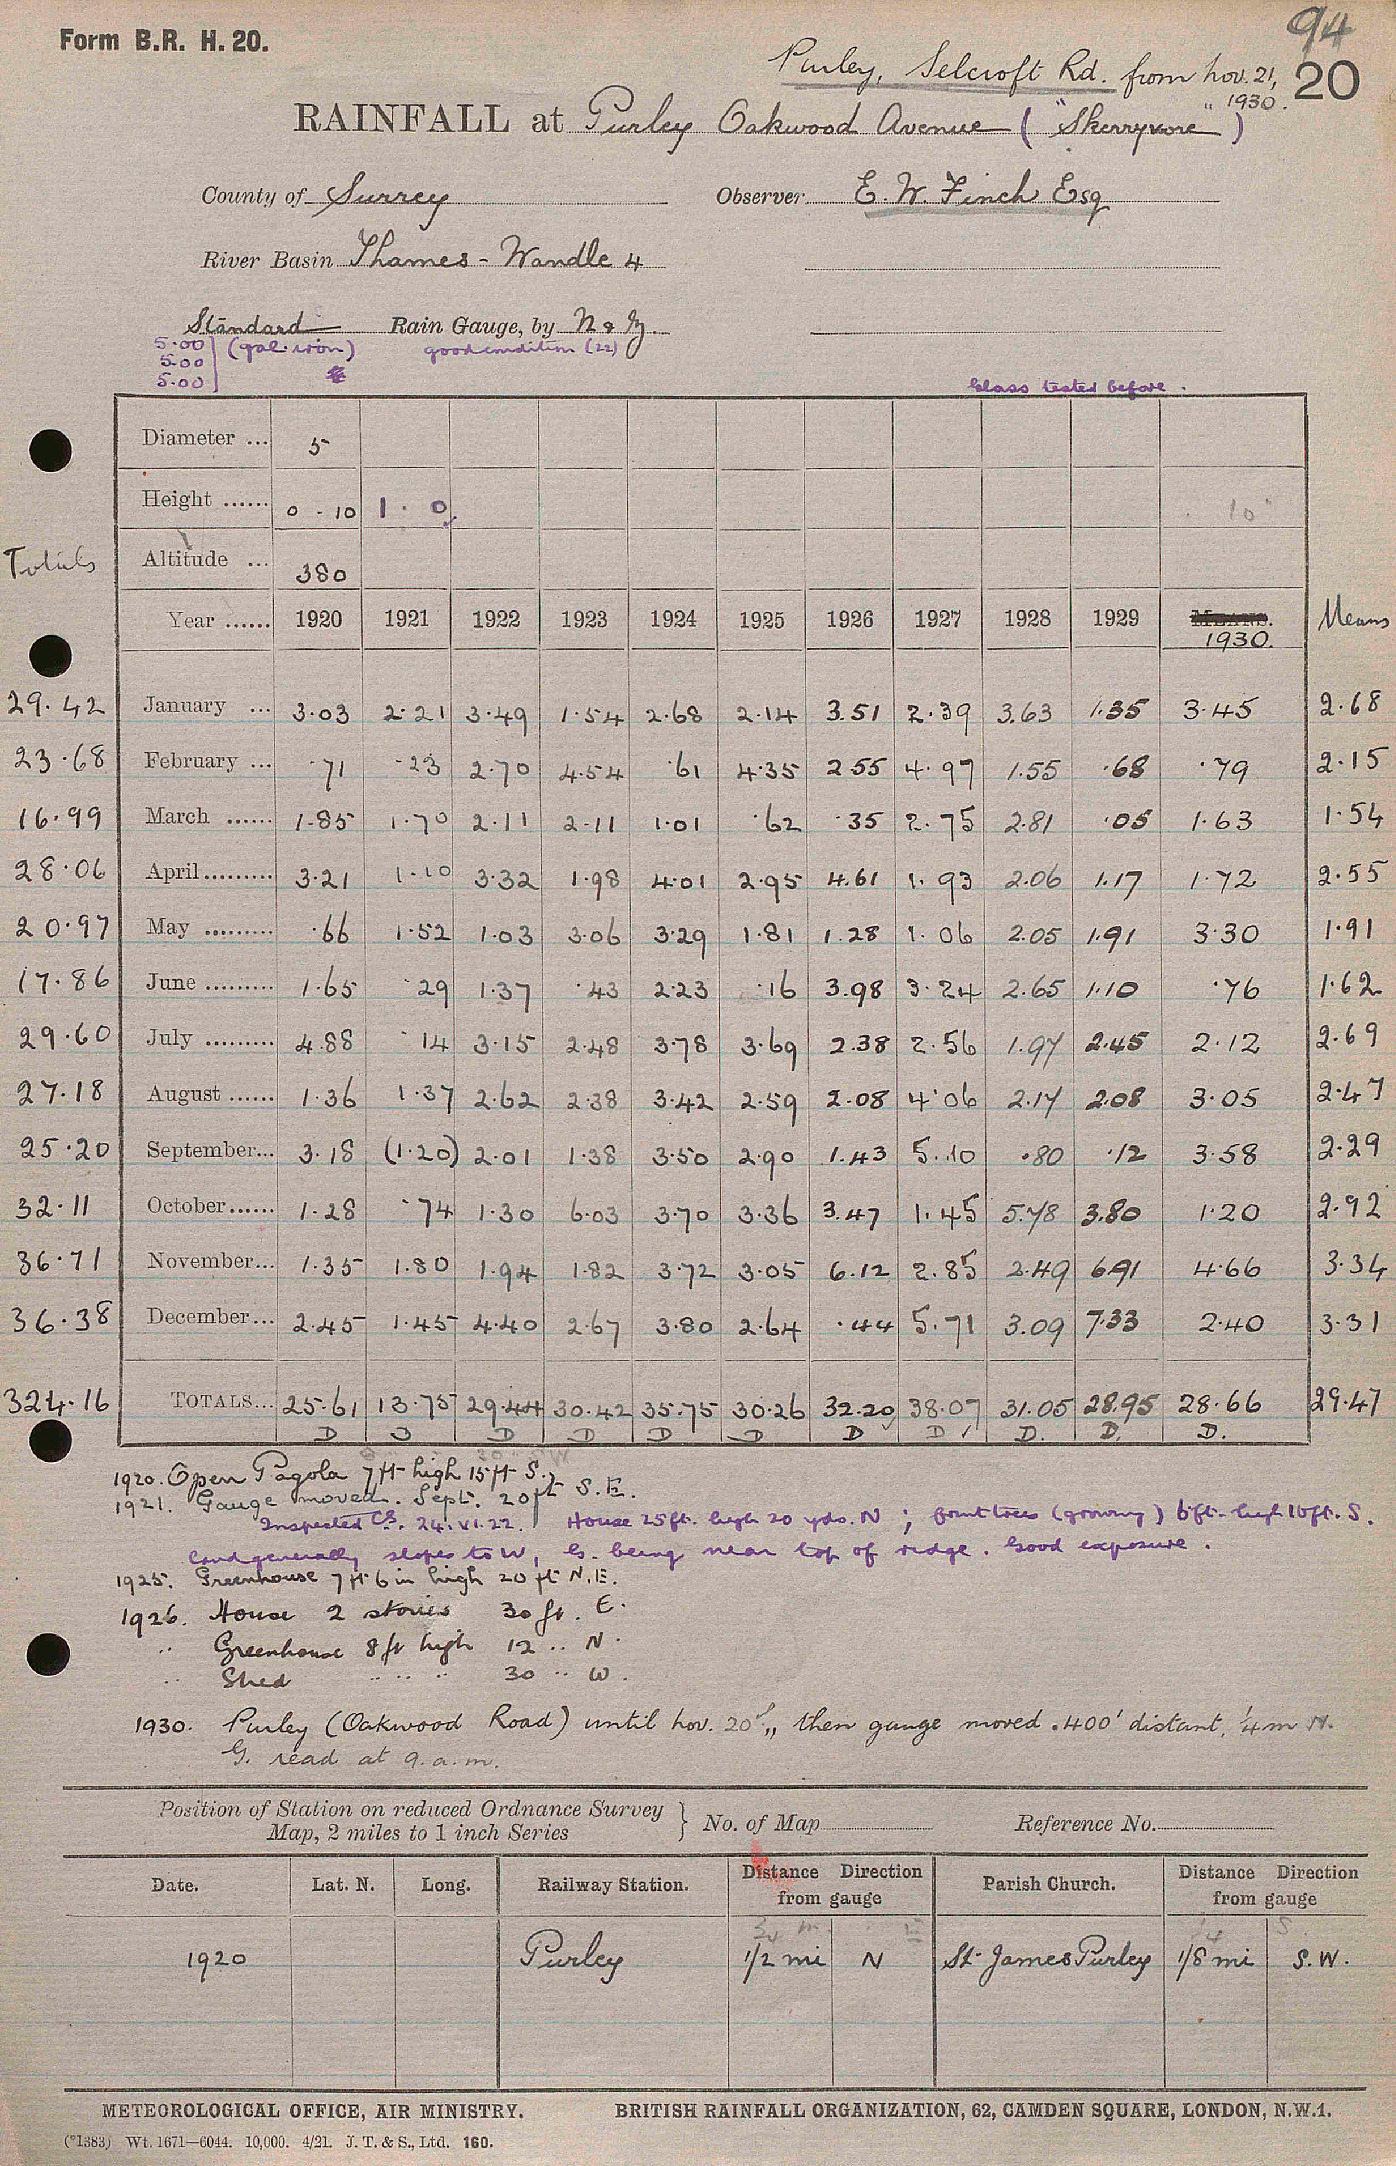 94
Form B.R. H. 20.
Purley, Selcroft Rd. from Nov. 21, 20
" 1930.
RAINFALL at Purley Oakwood Avenue ("Skerryvore")
County of Surrey Observer E. W. Finch Esq
River Basin Thames - Wandle 4
Standard Rain Gauge, by N & Z
5.00 (gal. iron) good condition (22)
5.00
5.00
Glass tested before.
Diameter ... 5
Height ...... 0 - 10 1 . 0 10"
Totals Altitude ... 380
Year ...... 1920 1921 1922 1923 1924 1925 1926 1927 1928 1929 MEANS. Means
1930.
29.42 January ... 3.03 2.21 3.49 1.54 2.68 2.14 3.51 2.39 3.63 1.35 3.45 2.68
23.68 February ... .71 .23 2.70 4.54 .61 4.35 2.55 4.97 1.55 .68 .79 2.15
16.99 March ...... 1.85 1.70 2.11 2.11 1.01 .62 .35 2.75 2.81 .05 1.63 1.54
28.06 April ......... 3.21 1.10 3.32 1.98 4.01 2.95 4.61 1.93 2.06 1.17 1.72 2.55
20.97 May ......... .66 1.52 1.03 3.06 3.29 1.81 1.28 1.06 2.05 1.91 3.30 1.91
17.86 June ......... 1.65 .29 1.37 .43 2.23 .16 3.98 3.24 2.65 1.10 .76 1.62
29.60 July ......... 4.88 .14 3.15 2.48 3.78 3.69 2.38 2.56 1.97 2.45 2.12 2.69
27.18 August ...... 1.36 1.37 2.62 2.38 3.42 2.59 2.08 4.06 2.17 2.08 3.05 2.47
25.20 September... 3.18 (1.20) 2.01 1.38 3.50 2.90 1.43 5.10 .80 .12 3.58 2.29
32.11 October...... 1.28 .74 1.30 6.03 3.70 3.36 3.47 1.45 5.78 3.80 1.20 2.92
36.71 November... 1.35 1.80 1.94 1.82 3.72 3.05 6.12 2.85 2.49 6.91 4.66 3.34
36.38 December... 2.45 1.45 4.40 2.67 3.80 2.64 .44 5.71 3.09 7.33 2.40 3.31
324.16 TOTALS... 25.61 13.75 29.44 30.42 35.75 30.26 32.20 38.07 31.05 28.95 28.66 29.47
D D D D D D D D D. D. D.
1920. Open Pagola 7 ft high 15 ft S.
1921. Gauge moved. Sept. 20 ft S.E.
Inspected CS. 24.VI.22. House 25 ft. high 20 yds. N; fruit trees (growing) 6 ft. high 10 ft. S.
Land generally slopes to W, G. being near top of ridge. Good exposure.
1925. Greenhouse 7 ft 6 in high 20 ft N.E.
1926. House 2 stories 30 ft. E.
" Greenhouse 8 ft high 12 " N.
" Shed " " " 30 " W.
1930. Purley (Oakwood Road) until Nov. 20th, then gauge moved. 400' distant, 1/4 m N.
G. read at 9. a.m.
Position of Station on reduced Ordnance Survey Map, 2 miles to 1 inch Series } No. of Map Reference No.
Date. Lat. N. Long. Railway Station. Distance Direction from gauge Parish Church. Distance Direction from gauge
3/4 m E 1/4 S
1920 Purley 1/2 mi N St. James Purley 1/8 mi S.W.
METEOROLOGICAL OFFICE, AIR MINISTRY. BRITISH RAINFALL ORGANIZATION, 62, CAMDEN SQUARE, LONDON, N.W.1.
(*1383) Wt. 1671—6044. 10,000. 4/21. J. T. & S., Ltd. 160.